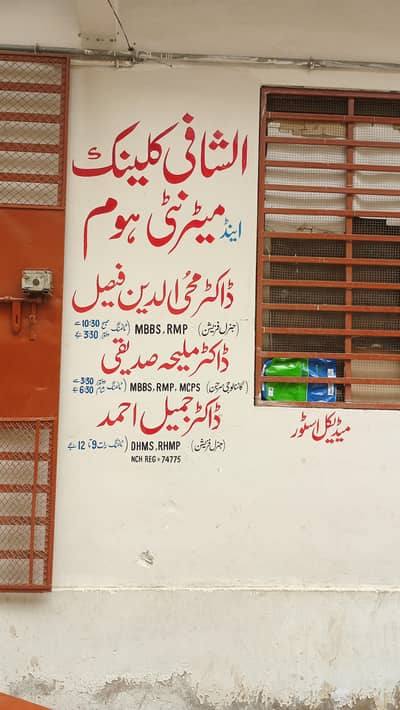 الشافی کلینک
اینڈ میٹرنٹی ہوم
ڈاکٹر محی الدین فیصل
(جنرل فزیشن) MBBS, RMP (ٹائمنگ صبح 10:30 سے دوپہر 3:30 بجے
ڈاکٹر ملیحہ صدیقی
(گائناکالوجی سرجن) MBBS, RMP, MCPS (ٹائمنگ دوپہر 3:30 سے شام 6:30 بجے
ڈاکٹر جمیل احمد
(جنرل فزیشن) DHMS, RHMP (ٹائمنگ رات 9 تا 12 بجے
NCH REG=74775
میڈیکل اسٹور